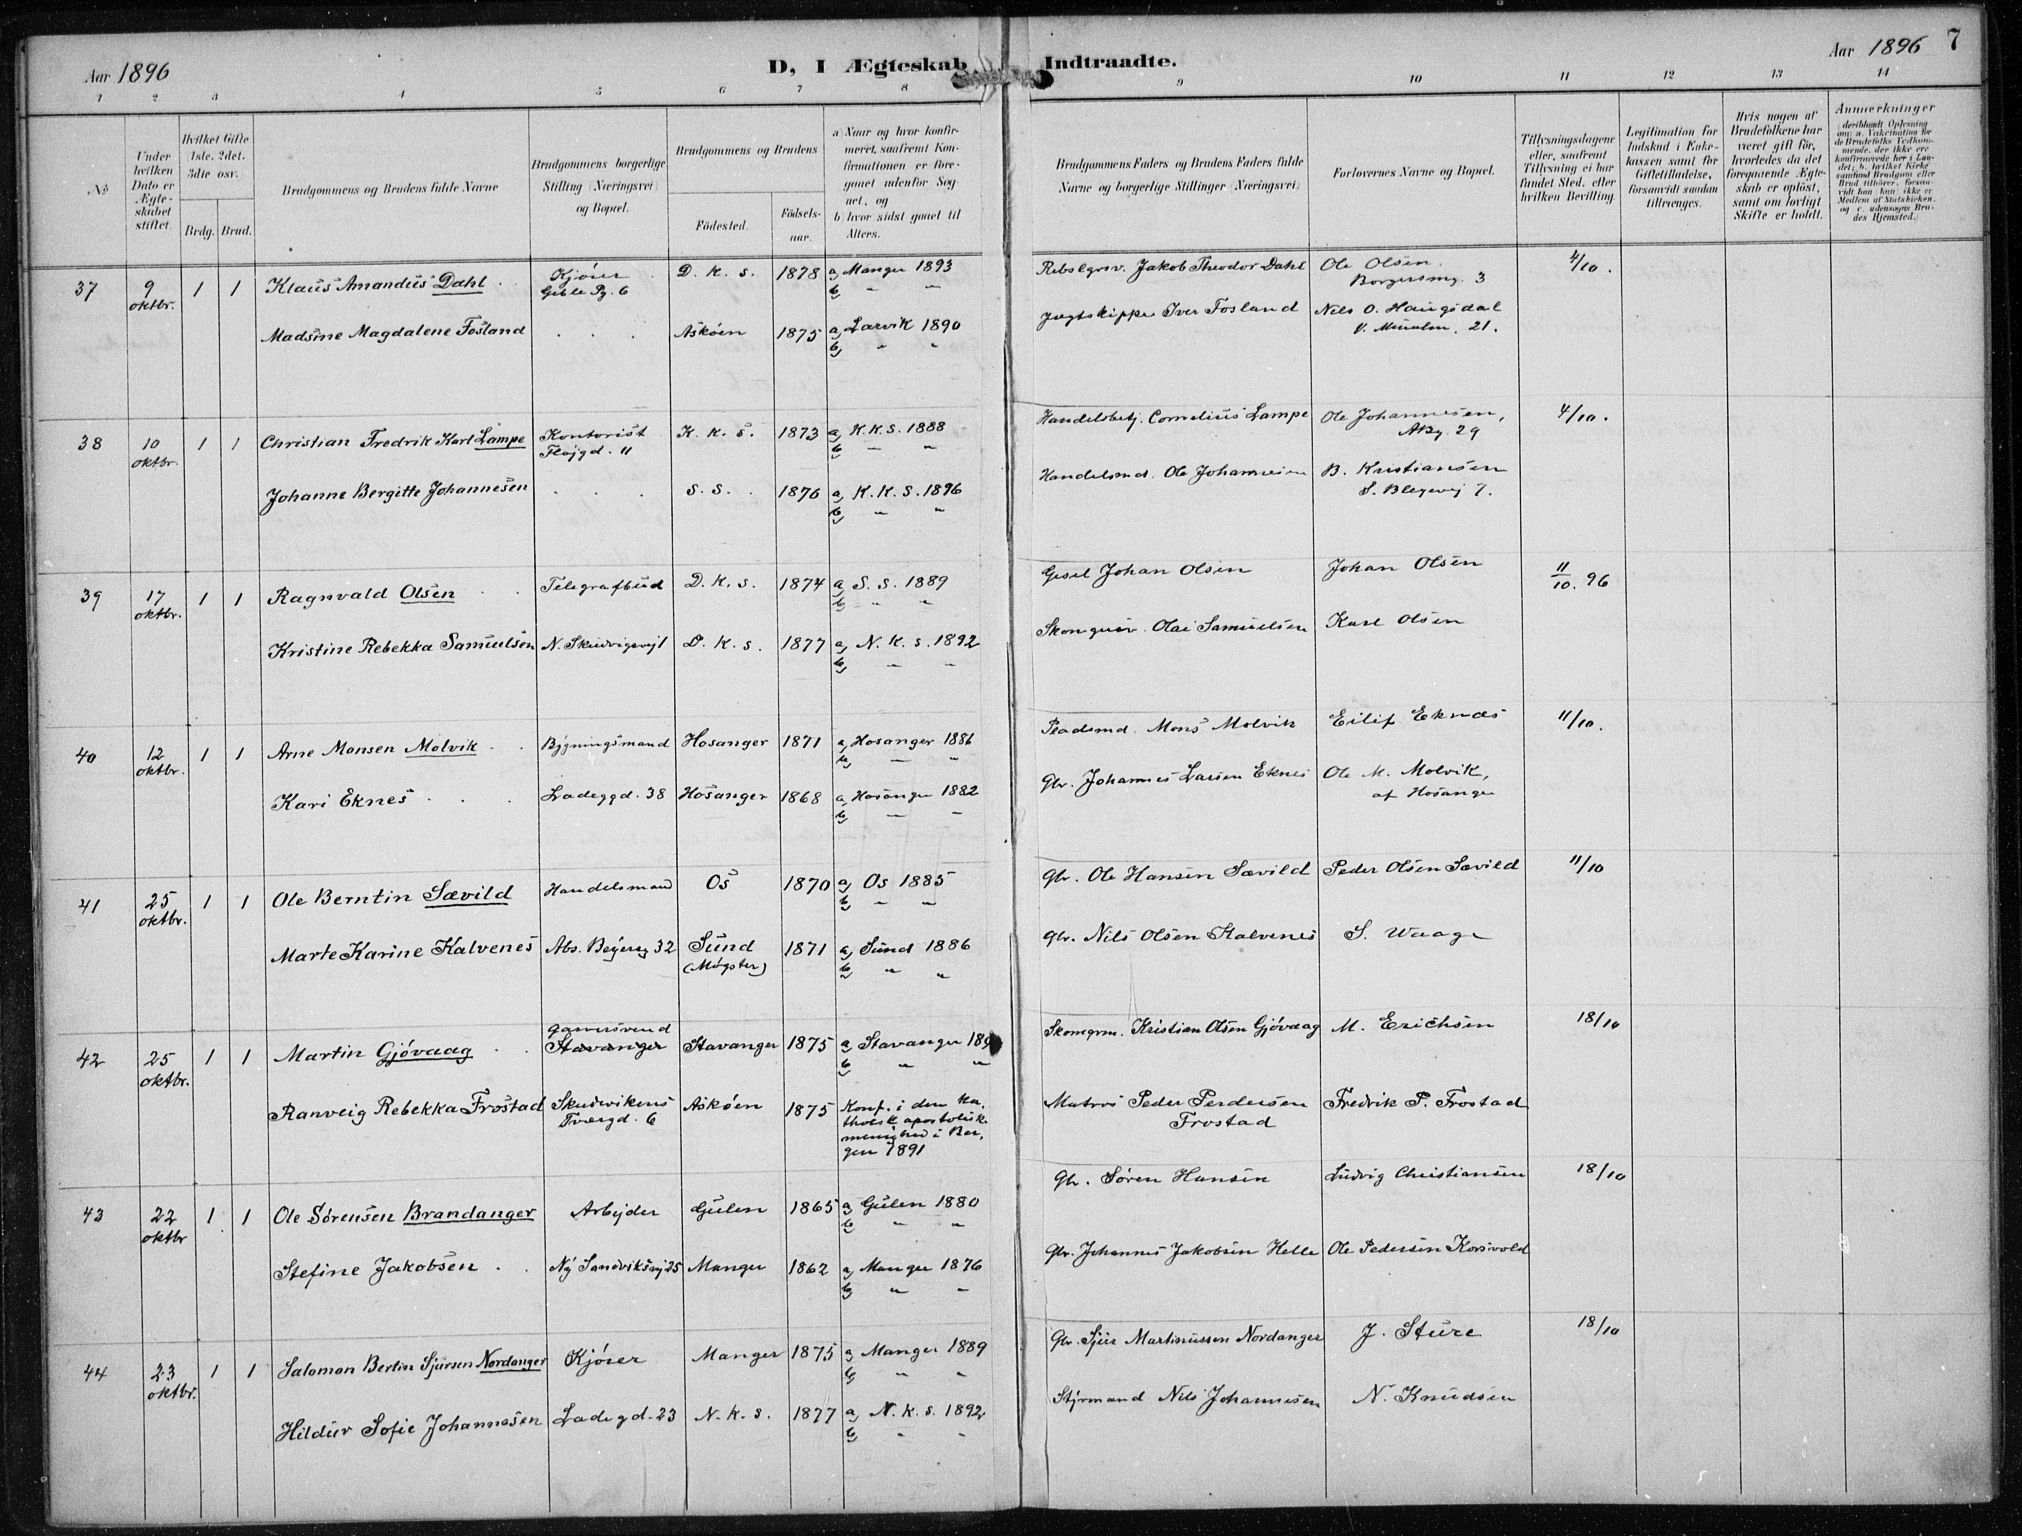 Aar 1896
D, I Ægteskab Indtraadte.
Aar 1896 7
1 2 3 4 5 6 7 8 9 10 11 12 13 14
№
Under hvilken Dato er Ægteskabet stiftet.
Hvilket Gifte 1ste, 2det, 3die osv.
Brdg. Brud.
Brudgommens og Brudens fulde Navne
Brudgommens borgerlige Stilling (Næringsvei) og Bopæl.
Brudgommens og Brudens
Fødested.
Fødselsaar.
a) Naar og hvor konfirmeret, saafremt Konfirmationen er foregaaet udenfor Sognet, og
b) hvor sidst gaaet til Alters.
Brudgommens Faders og Brudens Faders fulde Navne og borgerlige Stillinger (Næringsvei)
Forlovernes Navne og Bopæl.
Tillysningsdagene eller, saafremt Tillysning ei har fundet Sted, efter hvilken Bevilling.
Legitimation for Indskud i Enkekassen samt for Giftetilladelse, forsaavidt saadan tiltrænges.
Hvis nogen af Brudefolkene har været gift før, hvorledes da det foregaaende Ægteskab er opløst, samt om lovligt Skifte er holdt.
Anmærkninger
37 9 oktbr. 1 1 Klaus Amandus Dahl Kjører D. K. S. 1878 a) Manger 1893 Jakob Theodor Dahl Ole Olsen 4/10.
b) " "
Borgersmg. 3
Madsine Magdalene Fosland Askøen 1875 a) Larvik 1890 Iver Fosland Nils O. Haugsdal
b) " " 21.
38 10 oktbr. 1 1 Christian Fredrik Karl Lampe Kontorist K. K. S. 1873 a) K.K.S. 1888 Handelsbetj. Cornelius Lampe Ole Johannesen, 4/10.
Fløjgd. 11 b) " " 29
Johanne Bergitte Johannesen S. S. 1876 a) K.K.S. 1896 Handelsmd. Ole Johannesen B. Kristiansen
b) " " 7.
39 17 oktbr. 1 1 Ragnvald Olsen Telegrafbud D. K. S. 1874 a) S. S. 1889 Johan Olsen Johan Olsen 11/10. 96
b) " "
Kristine Rebekka Samuelsen D. K. S. 1877 a) N. K. S. 1892 Olai Samuelsen Karl Olsen
b) " "
40 12 oktbr. 1 1 Arne Monsen Molvik Bygningsmand Hosanger 1871 a) Hosanger 1886 Mons Molvik Eilif Eknes 11/10.
b) " "
Kari Eknes Ladeggd. 38 Hosanger 1868 a) Hosanger 1882 Gbr. Johannes Larsen Eknes Ole M. Molvik,
b) " " af Hosanger
41 25 oktbr. 1 1 Ole Berntin Sævild Handelsmand Os 1870 a) Os 1885 Gbr. Ole Hansen Sævild Peder Olsen Sævild 11/10
b) " "
Marte Karine Kalvenes Abs. Beyersg 32 Sund 1871 a) Sund 1886 Gbr. Nils Olsen Kalvenes S. Waage
(Møgster) b) " "
42 25 oktbr. 1 1 Martin Gjøvaag Garversvend Stavanger Stavanger 1875 a) Stavanger Kristian Olsen Gjøvaag M. Erichsen 18/10
b) " "
Ranveig Rebekka Frostad Skudevikens Tvergd. 6 Askøen 1875 Konf. i den katholsk apostolisk menighed i Bergen 1891 Matros Peder Perdersen Frostad Fredrik P. Frostad
43 22 oktbr 1 1 Ole Sørensen Brandanger Arbejder Gulen 1865 a) Gulen 1880 Gbr. Søren Hansen Ludvig Christiansen 18/10
b) " "
Stefine Jakobsen Ny Sandviksvj 25 Manger 1862 a) Manger 1876 Gbr. Johannes Jakobsen Helle Ole Pedersen Korsvold
b) " "
44 23 oktbr. 1 1 Salomon Bertin Sjursen Nordanger Kjører Manger 1875 a) Manger 1889 Gbr. Sjur Martinussen Nordanger J. Sture 18/10
b) " "
Hildur Sofie Johannesen Ladegd. 23 N. K. S. 1877 a) N. K. S. 1892 Styrmand Nils Johannesen N. Knudsen
b) " "